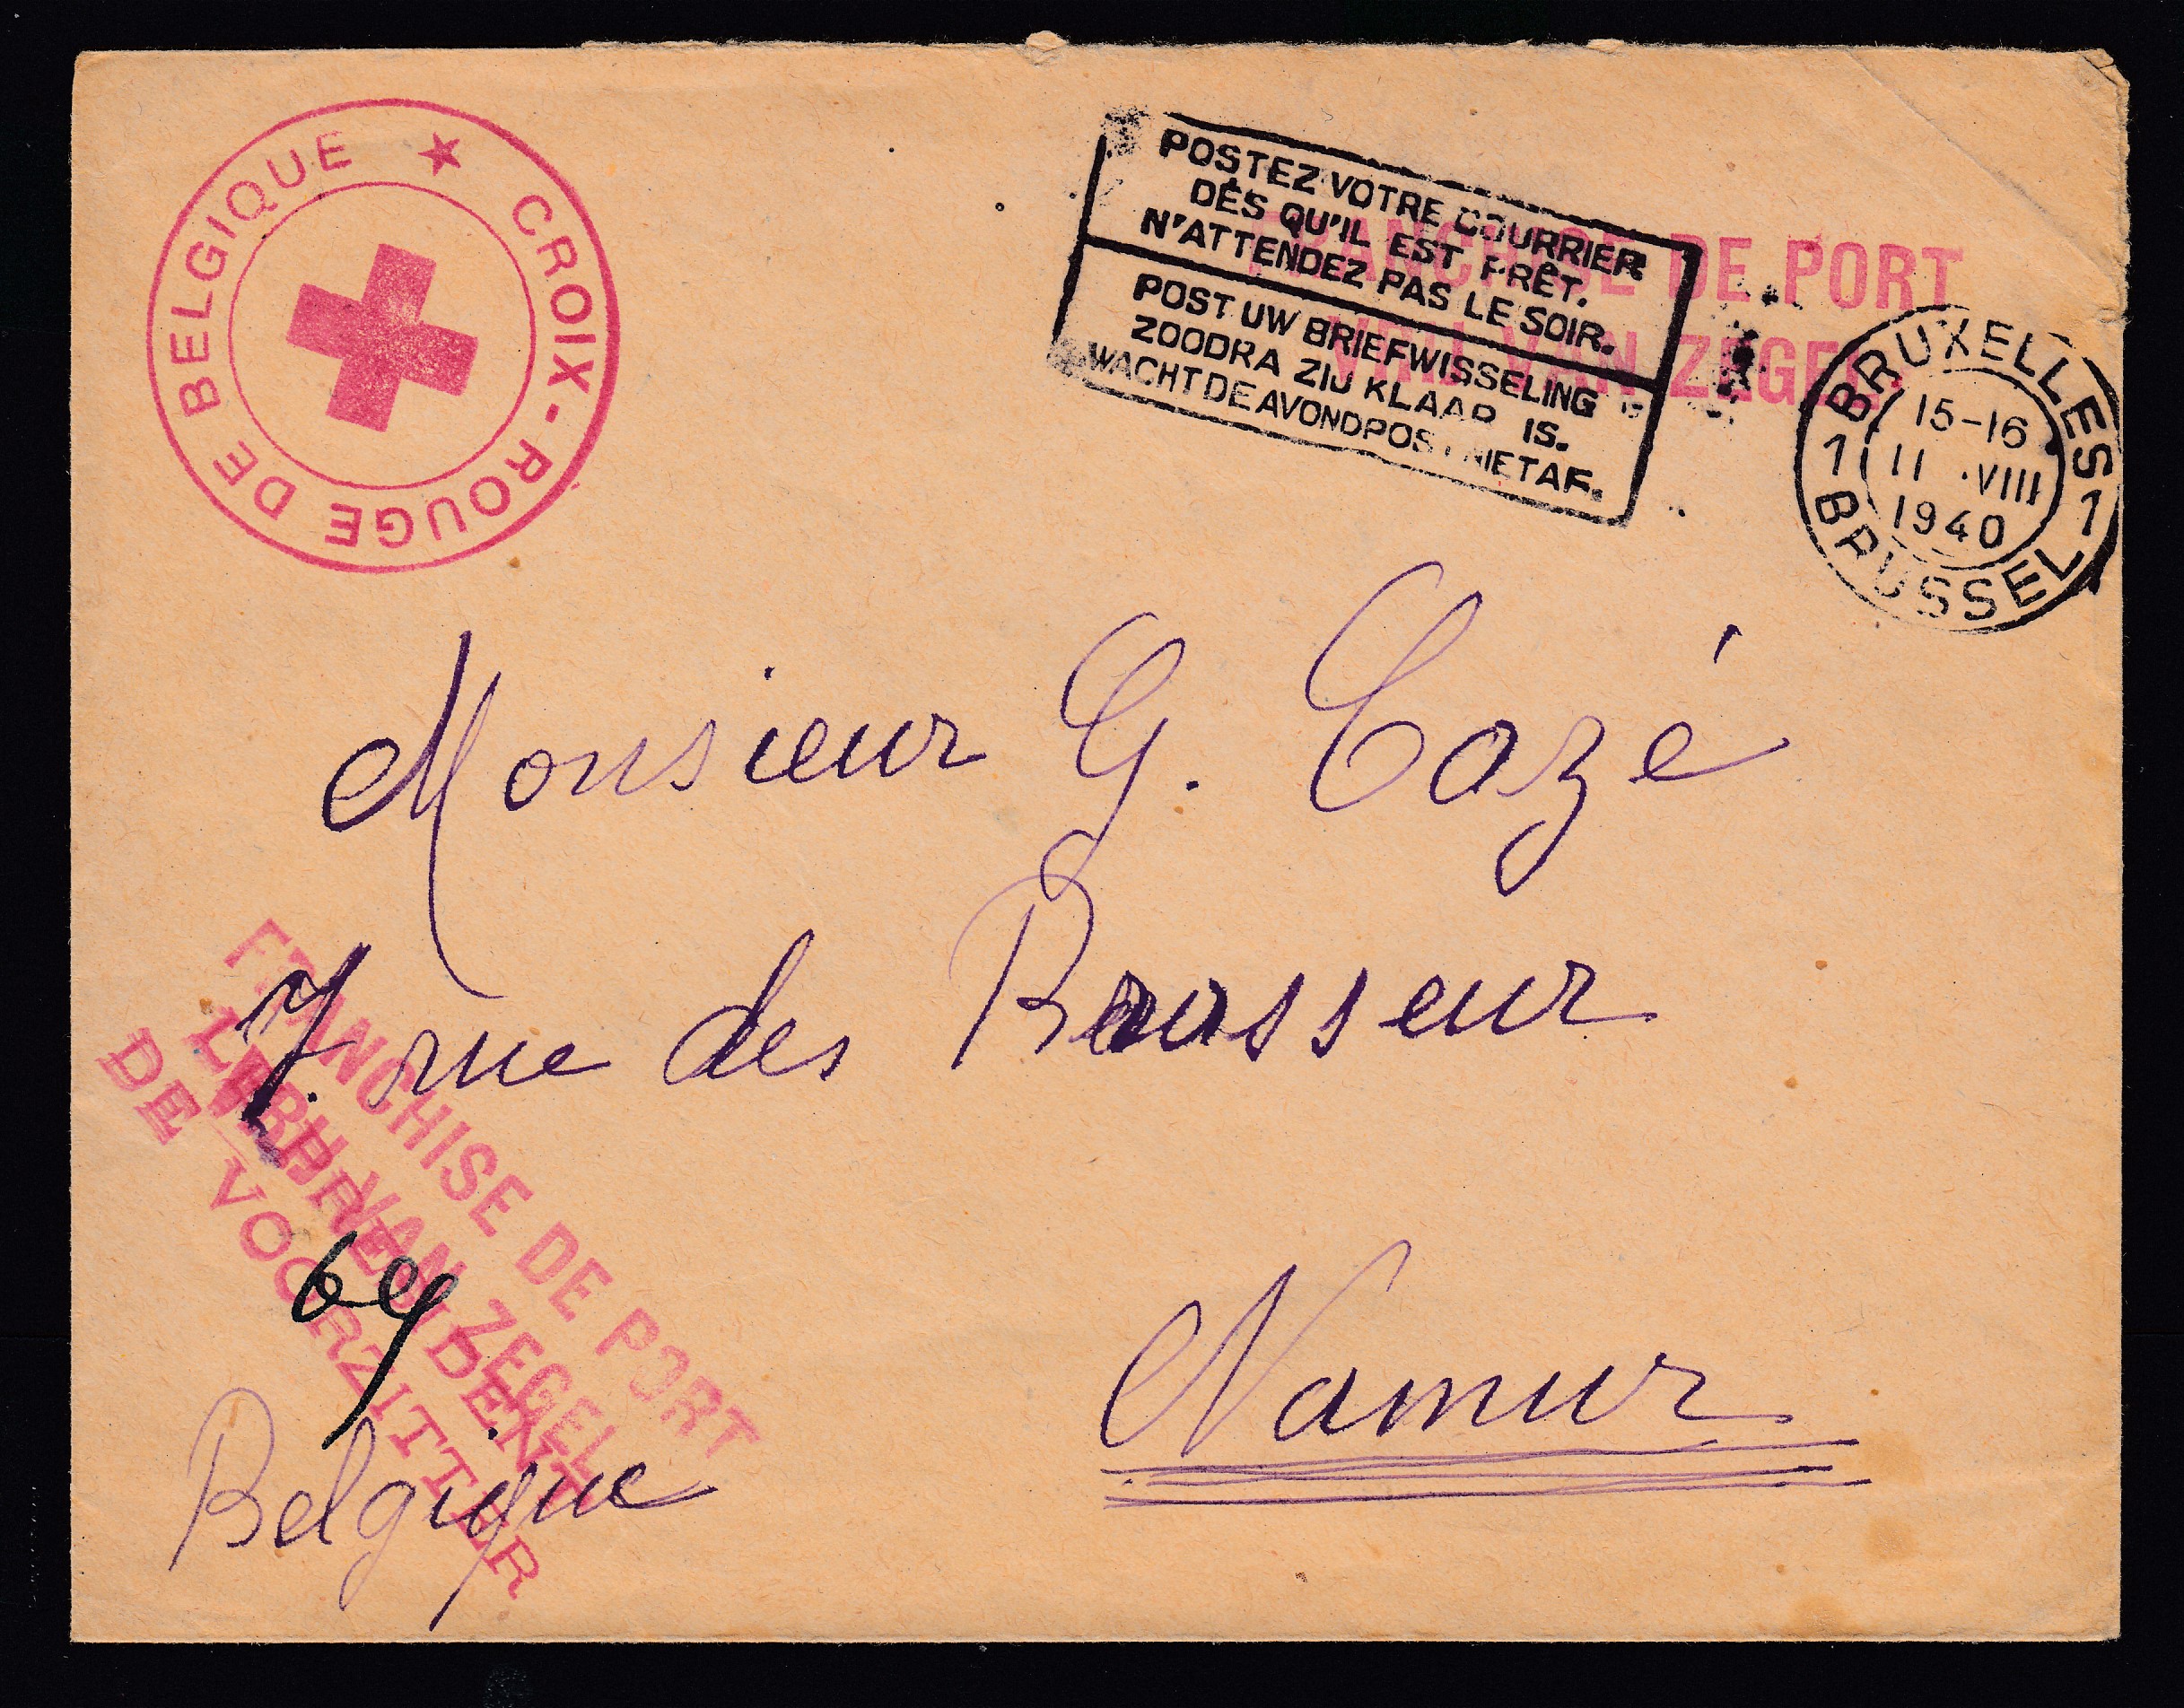 CROIX-ROUGE DE BELGIQUE ★
POSTEZ VOTRE COURRIER
DÈS QU'IL EST PRÊT.
N'ATTENDEZ PAS LE SOIR.
POST UW BRIEFWISSELING
ZOODRA ZIJ KLAAR IS.
WACHT DE AVONDPOST NIET AF.
FRANCHISE DE PORT
VRIJ VAN ZEGEL
BRUXELLES
1 1
15-16
11 .VIII
1940
BRUSSEL
Monsieur G. Cozé
7. rue des Brasseur
Namur
Belgique
FRANCHISE DE PORT
VRIJ VAN ZEGEL
LE PRESIDENT
DE VOORZITTER